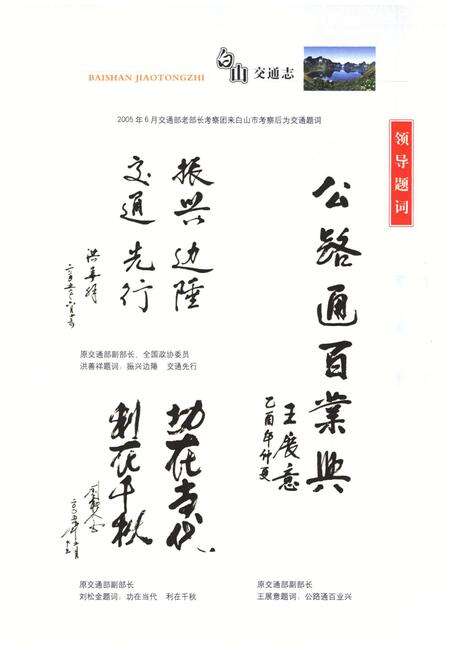 BAISHAN JIAOTONGZHI
白山 交通志
2005年6月交通部老部长考察团来白山市考察后为交通题词
领导题词
公路通百業興
乙酉年仲夏
王展意
振兴边陲
交通先行
洪善祥
二〇〇五年六月
原交通部副部长、全国政协委员
洪善祥题词：振兴边陲 交通先行
功在当代
利在千秋
原交通部副部长
刘松金题词：功在当代 利在千秋
原交通部副部长
王展意题词：公路通百业兴